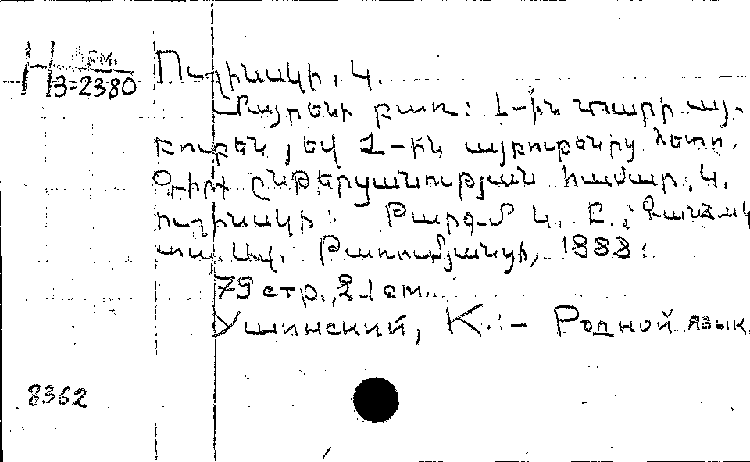 Н Арм.
3-2380
Ուշինսկի, Կ.
Մայրենի բառ: 1-ին տարի այ-
բուբեն, եվ 1-ին այբուբենից հետո.
Գիրք ընթերցանության համար, Կ.
Ուշինսկի: Թարգմ. Կ. Ը.,
տպ. Ավ. 1888:
79 стр., 21 см.
Ушинский, К.:- Родной язык.
8362